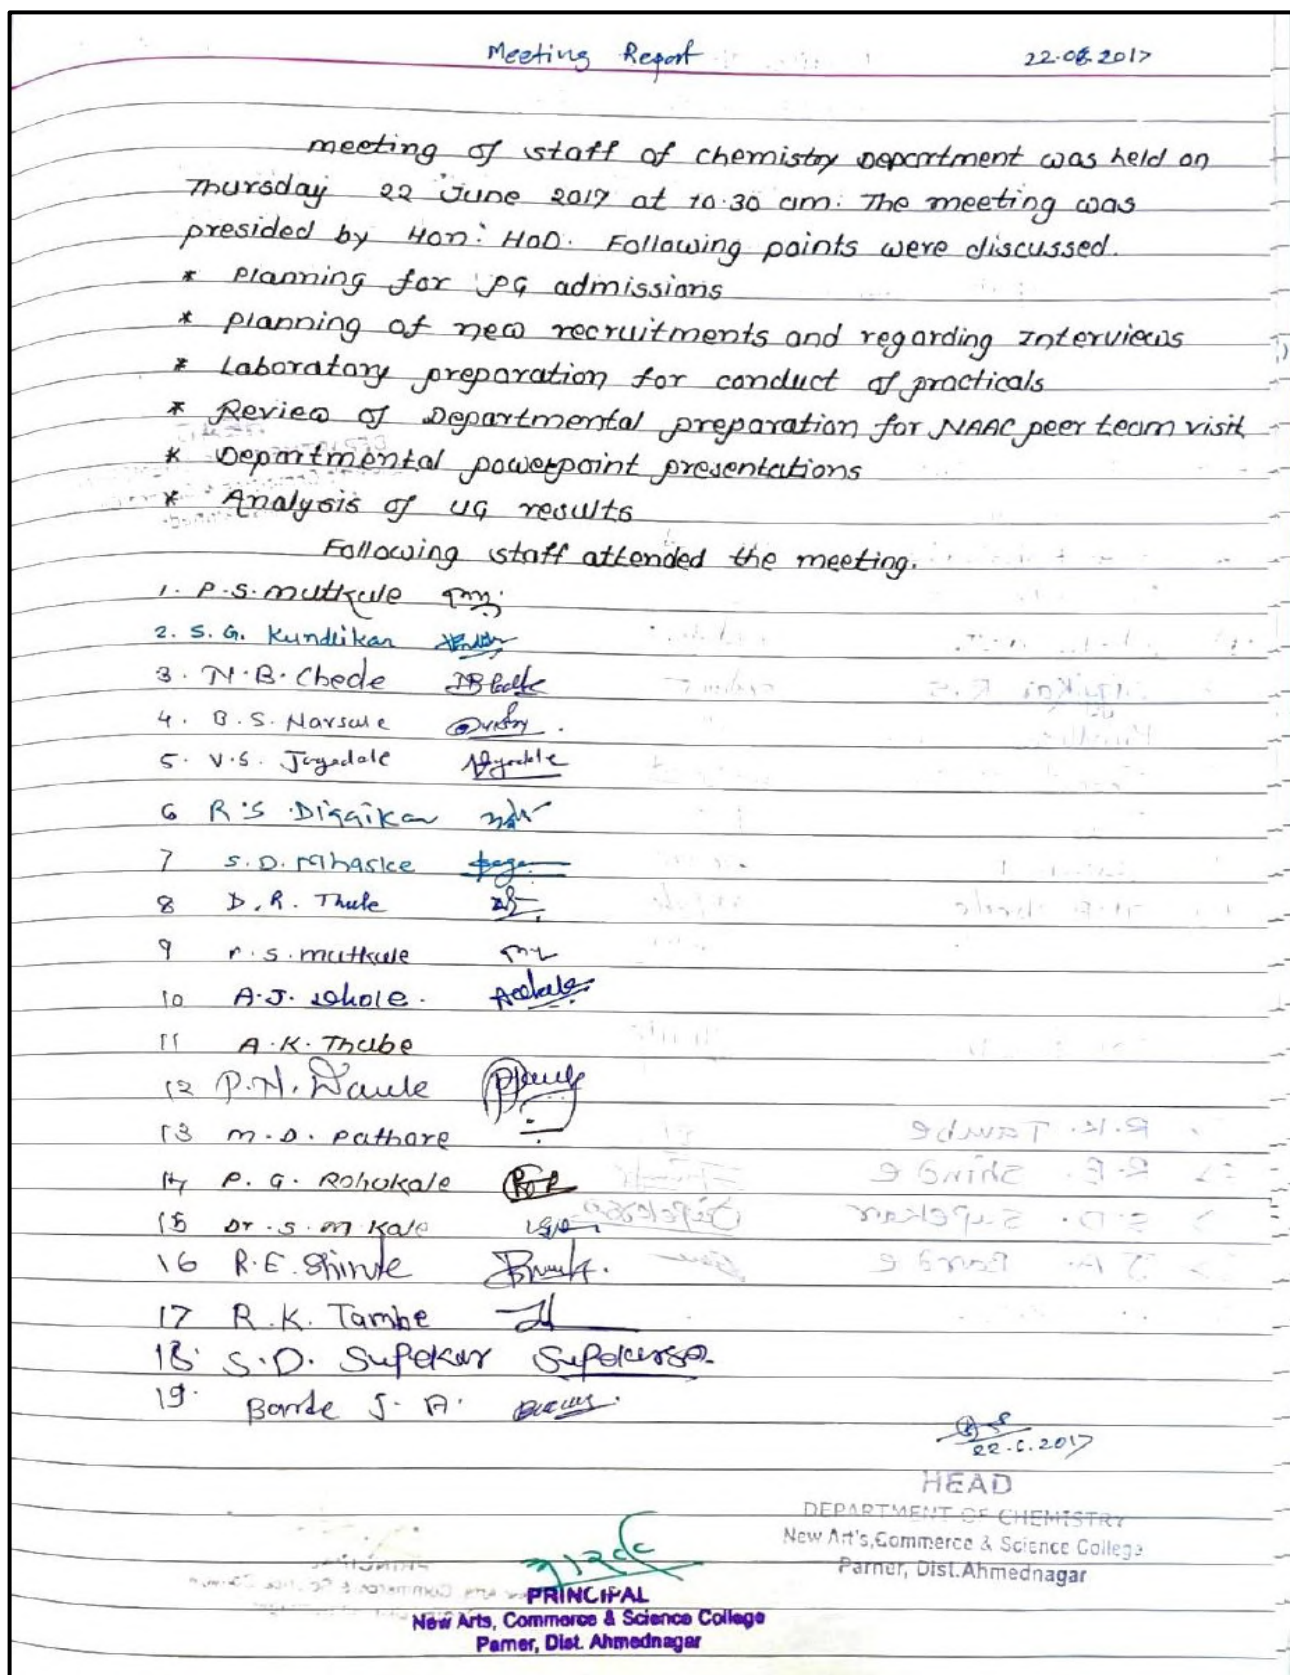 Meeting Report 22.06.2017
meeting of staff of chemistry Department was held on
Thursday 22 June 2017 at 10.30 am. The meeting was
presided by Hon. HOD. Following points were discussed.
* Planning for PG admissions
* planning of new recruitments and regarding Interviews
* Laboratory preparation for conduct of practicals
* Review of Departmental preparation for NAAC peer team visit
* Departmental powerpoint presentations
* Analysis of UG results
Following staff attended the meeting.
1. P.S. Mutkule
2. S. G. Kundlikar
3. N.B. Chede
4. B.S. Narsale
5. V.S. Jagadale
6 R.S Diggikar
7 S.D. Mhaske
8 D.R. Thule
9 P.S. mutkule
10 A.J. Dhole.
11 A.K. Thube
12 P.N. Daule
13 M.D. Pathare
14 P.G. Rohokale
15 Dr. S. M Kale
16 R.E. Shinde
17 R.K. Tambe
18. S.D. Supekar Supekarsd.
19. Barde J. A.
22.6.2017
HEAD
DEPARTMENT OF CHEMISTRY
New Art's, Commerce & Science College
Parner, Dist. Ahmednagar
PRINCIPAL
New Arts, Commerce & Science College
Parner, Dist. Ahmednagar